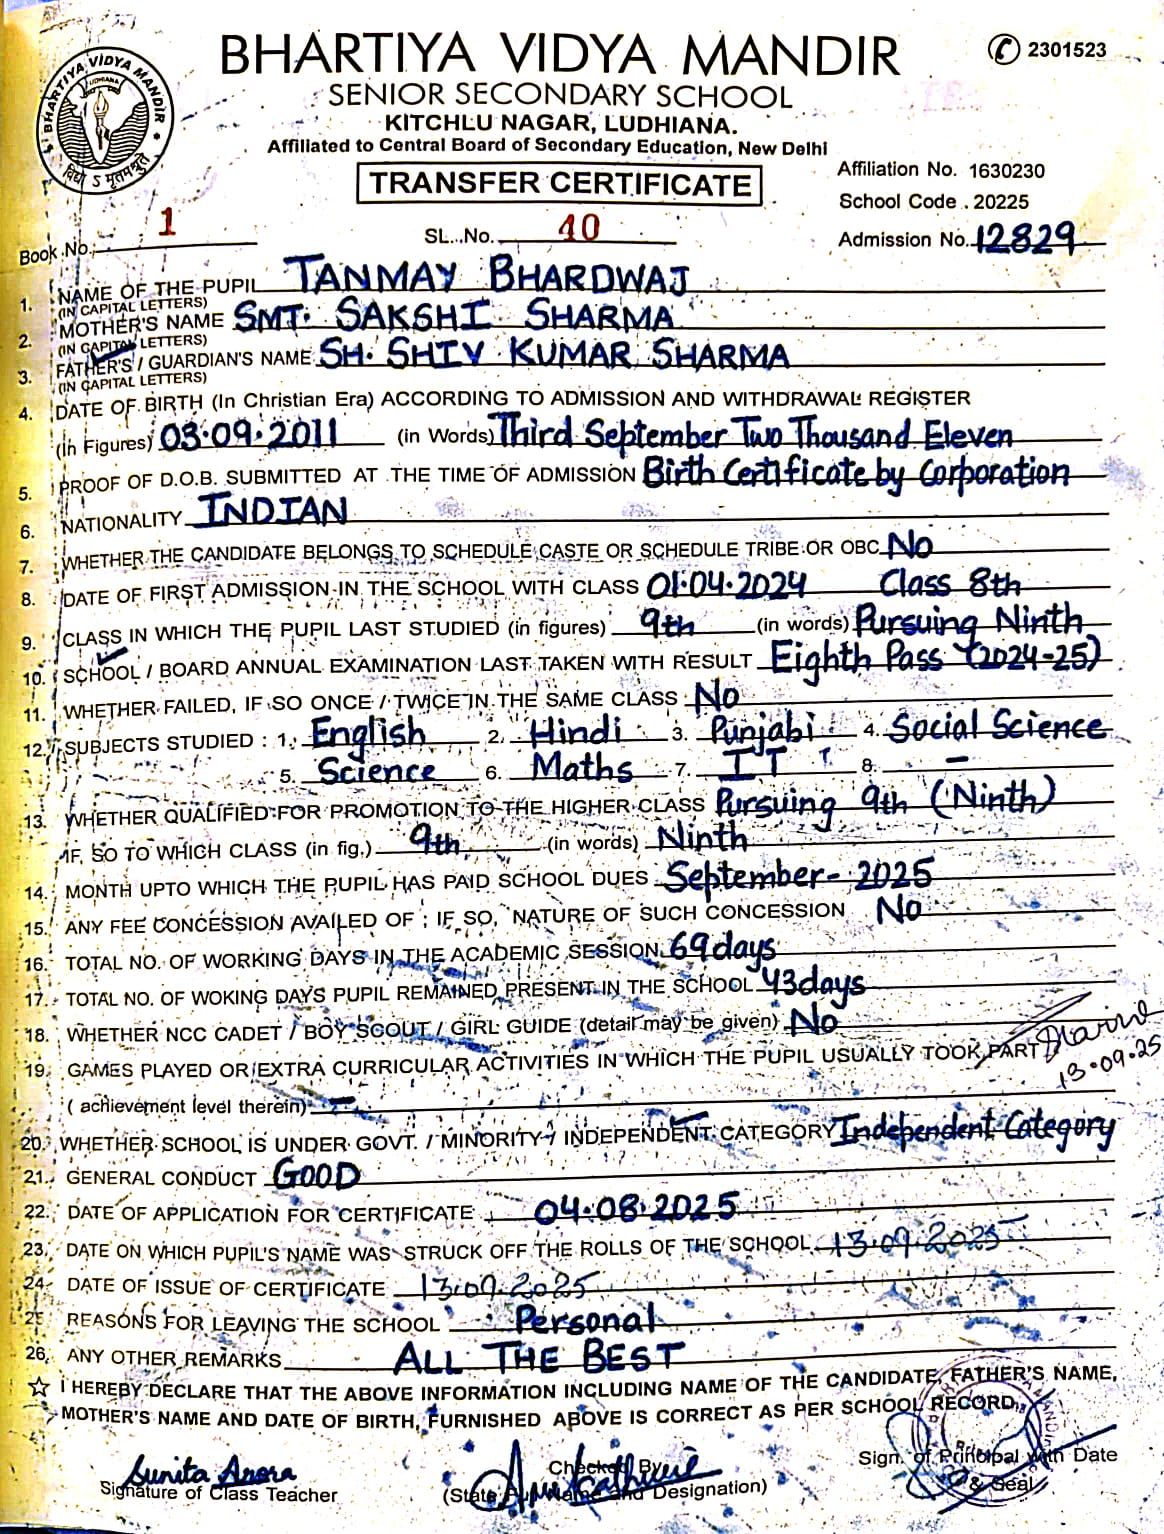 BHARTIYA VIDYA MANDIR
2301523
SENIOR SECONDARY SCHOOL
KITCHLU NAGAR, LUDHIANA.
Affiliated to Central Board of Secondary Education, New Delhi
BHARTIYA VIDYA MANDIR
LUDHIANA
TRANSFER CERTIFICATE
Affiliation No. 1630230
School Code . 20225
Book No. 1 SL. No. 40 Admission No. 12829
1. NAME OF THE PUPIL TANMAY BHARDWAJ
(IN CAPITAL LETTERS)
2. MOTHER'S NAME SMT. SAKSHI SHARMA
(IN CAPITAL LETTERS)
3. FATHER'S / GUARDIAN'S NAME SH. SHIV KUMAR SHARMA
(IN CAPITAL LETTERS)
4. DATE OF BIRTH (In Christian Era) ACCORDING TO ADMISSION AND WITHDRAWAL REGISTER
(In Figures) 03.09.2011 (in Words) Third September Two Thousand Eleven
5. PROOF OF D.O.B. SUBMITTED AT THE TIME OF ADMISSION Birth Certificate by Corporation
6. NATIONALITY INDIAN
7. WHETHER THE CANDIDATE BELONGS TO SCHEDULE CASTE OR SCHEDULE TRIBE OR OBC No
8. DATE OF FIRST ADMISSION IN THE SCHOOL WITH CLASS 01.04.2024 Class 8th
9. CLASS IN WHICH THE PUPIL LAST STUDIED (in figures) 9th (in words) Pursuing Ninth
10. SCHOOL / BOARD ANNUAL EXAMINATION LAST TAKEN WITH RESULT Eighth Pass (2024-25)
11. WHETHER FAILED, IF SO ONCE / TWICE IN THE SAME CLASS No
12. SUBJECTS STUDIED : 1. English 2. Hindi 3. Punjabi 4. Social Science
5. Science 6. Maths 7. IT 8. –
13. WHETHER QUALIFIED FOR PROMOTION TO THE HIGHER CLASS Pursuing 9th (Ninth)
IF, SO TO WHICH CLASS (in fig.) 9th (in words) Ninth
14. MONTH UPTO WHICH THE PUPIL HAS PAID SCHOOL DUES September-2025
15. ANY FEE CONCESSION AVAILED OF ; IF SO, NATURE OF SUCH CONCESSION No
16. TOTAL NO. OF WORKING DAYS IN THE ACADEMIC SESSION 69 days
17. TOTAL NO. OF WOKING DAYS PUPIL REMAINED PRESENT IN THE SCHOOL 43 days
18. WHETHER NCC CADET / BOY SCOUT / GIRL GUIDE (detail may be given) No
19. GAMES PLAYED OR EXTRA CURRICULAR ACTIVITIES IN WHICH THE PUPIL USUALLY TOOK PART
13.09.25
( achievement level therein) –
20. WHETHER SCHOOL IS UNDER GOVT. / MINORITY / INDEPENDENT CATEGORY Independent Category
21. GENERAL CONDUCT GOOD
22. DATE OF APPLICATION FOR CERTIFICATE 04.08.2025
23. DATE ON WHICH PUPIL'S NAME WAS STRUCK OFF THE ROLLS OF THE SCHOOL 13.09.2025
24. DATE OF ISSUE OF CERTIFICATE 13.09.2025
25. REASONS FOR LEAVING THE SCHOOL Personal
26. ANY OTHER REMARKS ALL THE BEST
☆ I HEREBY DECLARE THAT THE ABOVE INFORMATION INCLUDING NAME OF THE CANDIDATE, FATHER'S NAME,
MOTHER'S NAME AND DATE OF BIRTH, FURNISHED ABOVE IS CORRECT AS PER SCHOOL RECORD.
Sunita Arora
Signature of Class Teacher
Checked By
(State Full Name and Designation)
Sign. of Principal with Date
& Seal